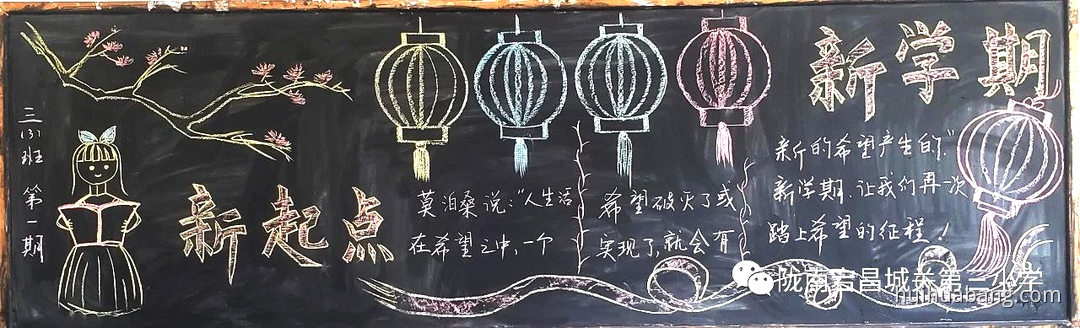 三(3)班 第一期
新起点
新学期
莫泊桑说:“人生活
在希望之中,一个
希望破灭了或
实现了就会有
新的希望产生的”
新学期.让我们再一次
踏上希望的征程!
陇南宕昌城关第三小学
huihuabang.com